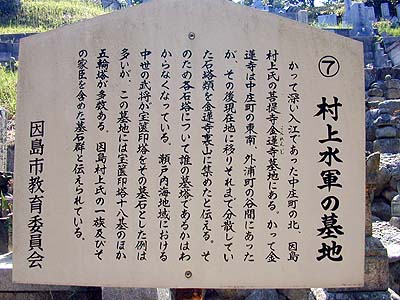 ⑦ 村上水軍の墓地
かって深い入江であった中庄町の北、因島
村上氏の菩提寺金蓮寺墓地にある。かって金
蓮寺は中庄町の東南、外浦町の谷間にあった
が、その後現在地に移りそれまで分散してい
た石塔類を金蓮寺裏山に集めたと伝える。そ
のため各石塔について誰の墓塔であるかはわ
からなくなっている。瀬戸内海地域における
中世の武将が宝篋印塔をその墓石とした例は
多いが、この墓地には宝篋印塔十八基のほか
五輪塔が多数ある。因島村上氏の一族及びそ
の家臣を含めた墓石群と伝えられている。
因島市教育委員会